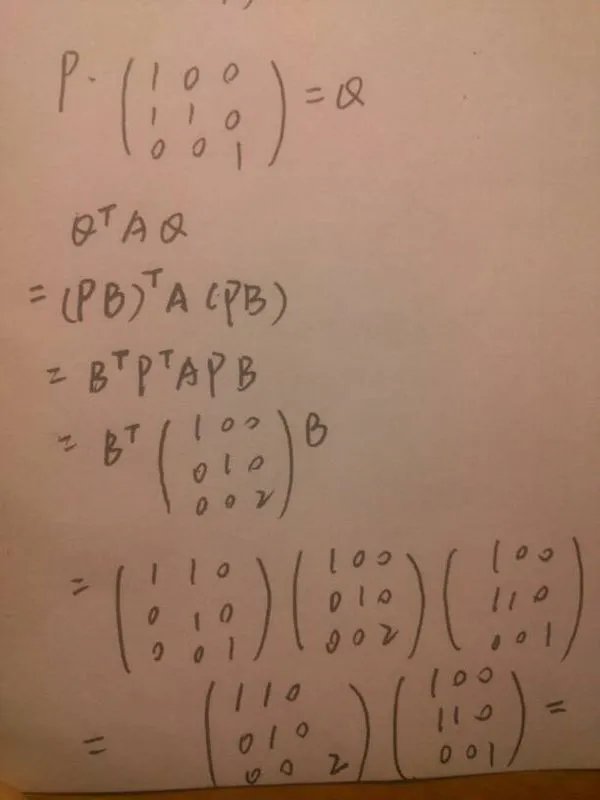 P · ( 1 0 0
1 1 0
0 0 1 ) = Q
QᵀAQ
= (PB)ᵀA(PB)
= BᵀPᵀAPB
= Bᵀ ( 1 0 0
0 1 0
0 0 2 ) B
= ( 1 1 0 ( 1 0 0 ( 1 0 0
0 1 0 0 1 0 1 1 0
0 0 1 ) 0 0 2 ) 0 0 1 )
= ( 1 1 0 ( 1 0 0
0 1 0 1 1 0
0 0 2 ) 0 0 1 ) =